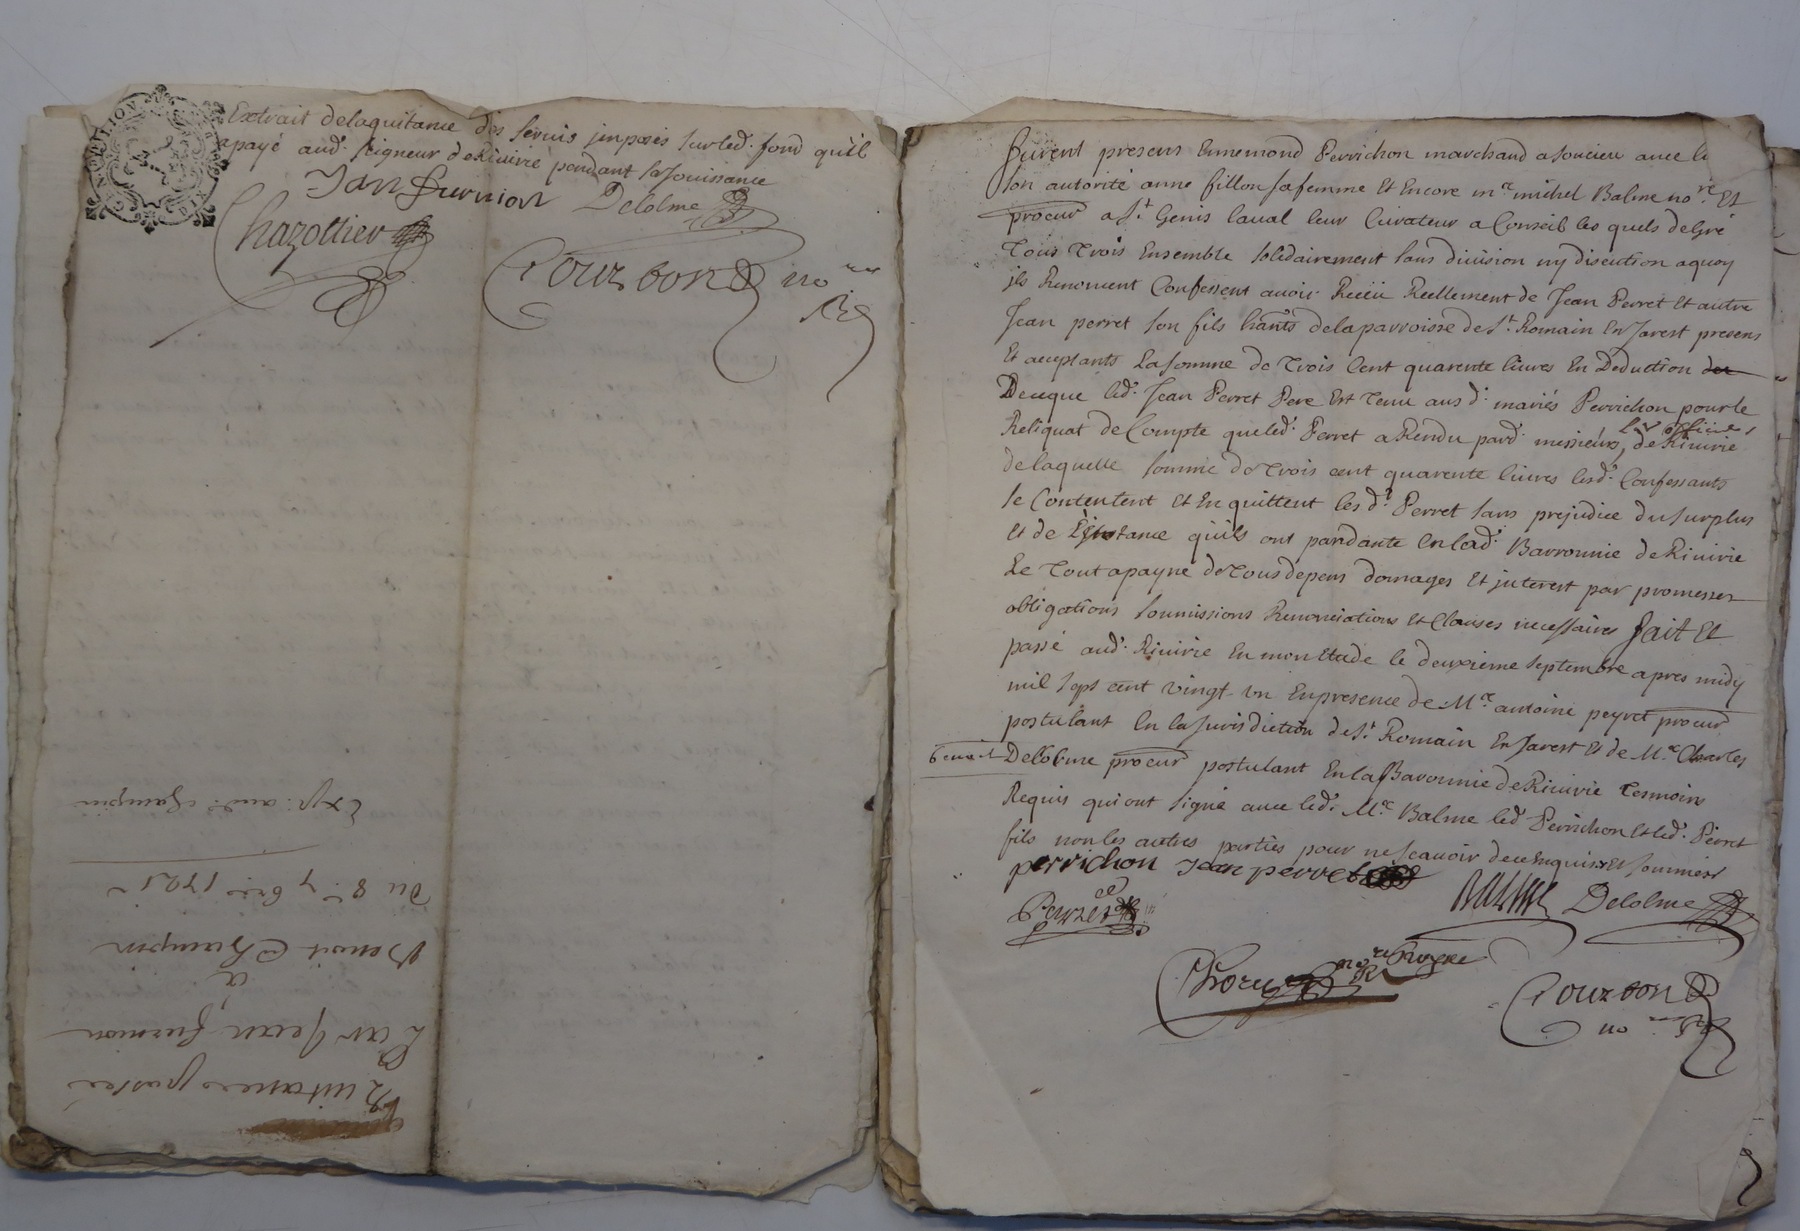 Extrait delaquitance des servis jmposés surled. fond qu'il
apayé aud. seigneur deRivirie pendant sa Jouissance
Jan furnion Delolme
Chazottier
Courbon no re
GENERALITE DE LYON
Quitance passée
Par Jean furnion
a
Benoit Champin
Du 8e 7bre 1721
Exp. aud. Champin
furent presens Ennemond Perrichon marchand a soucieu avec le
son autorité anne fillon sa femme Et Encore me michel Balme nore Et
procur a St Genis laval leur Curateur a Conseil les quels de Gré
Tous Trois Ensemble solidairement sans division ny discution aquoy
jls Renoncent Confessent avoir Receü Reellement de Jean Perret Et autre
Jean perret son fils hants delaparroisse de St Romain En Jarest presens
Et aceptants La somme de Trois Cent quarente livres En Deduction
Deceque led. Jean Perret Pere Est Tenu ausd. mariés Perrichon pourle
les officiers
Reliquat deCompte queled. Perret aRendu pard. messieurs deRivirie
delaquelle somme deTrois cent quarente livres lesd. Confessants
se Contentent Et En quittent lesd. Perret sans prejudice dusurplus
Et de L'jnstance qu'ils ont pandante Enlad. Barronnie deRivirie
Le Tout apayne deTousdepens domages Et jnterest par promesses
obligations soumissions Renonciations Et Clauses necessaires fait Et
passé aud. Rivirie En mon Etude le deuxieme septembre apres midy
mil sept cent vingt un Enpresence de Me antoine peyret procur
postulant En la Jurisdiction deSt Romain En Jarest Et de Me Charles
benoit
Delolme procur postulant En la Baronnie deRivirie Tesmoins
Requis qui ont signé avec led. Me Balme led Perrichon Et led. Perret
fils non les autres parties pour ne scavoir dece Enquis Et sommés
perrichon Jean perret
Balme Delolme
Courbon
no re